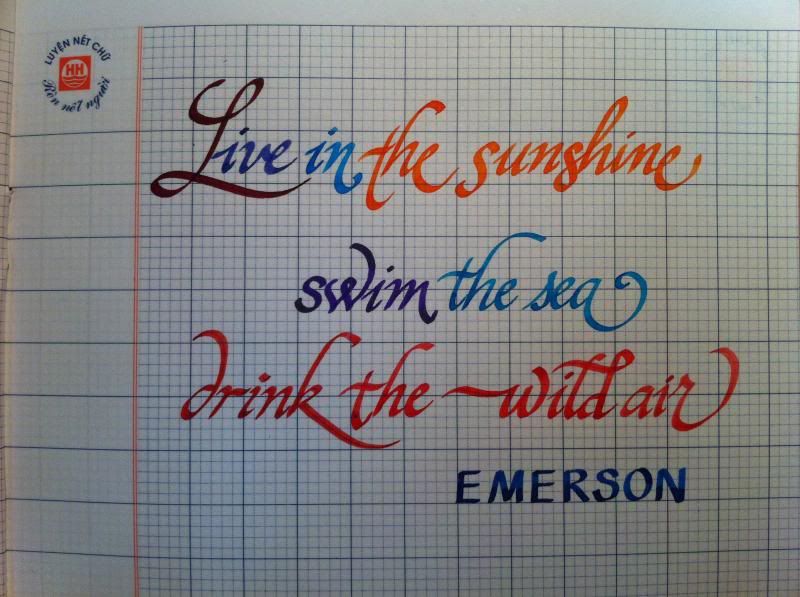 LUYỆN NÉT CHỮ
HH
Rèn nết người
Live in the sunshine
swim the sea
drink the wild air
EMERSON